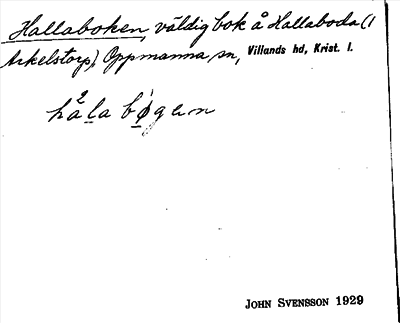 Hallaboken, väldig bok å Hallaboda (i
Arkelstorp), Oppmanna sn, Villands hd, Krist. l.
JOHN SVENSSON 1929